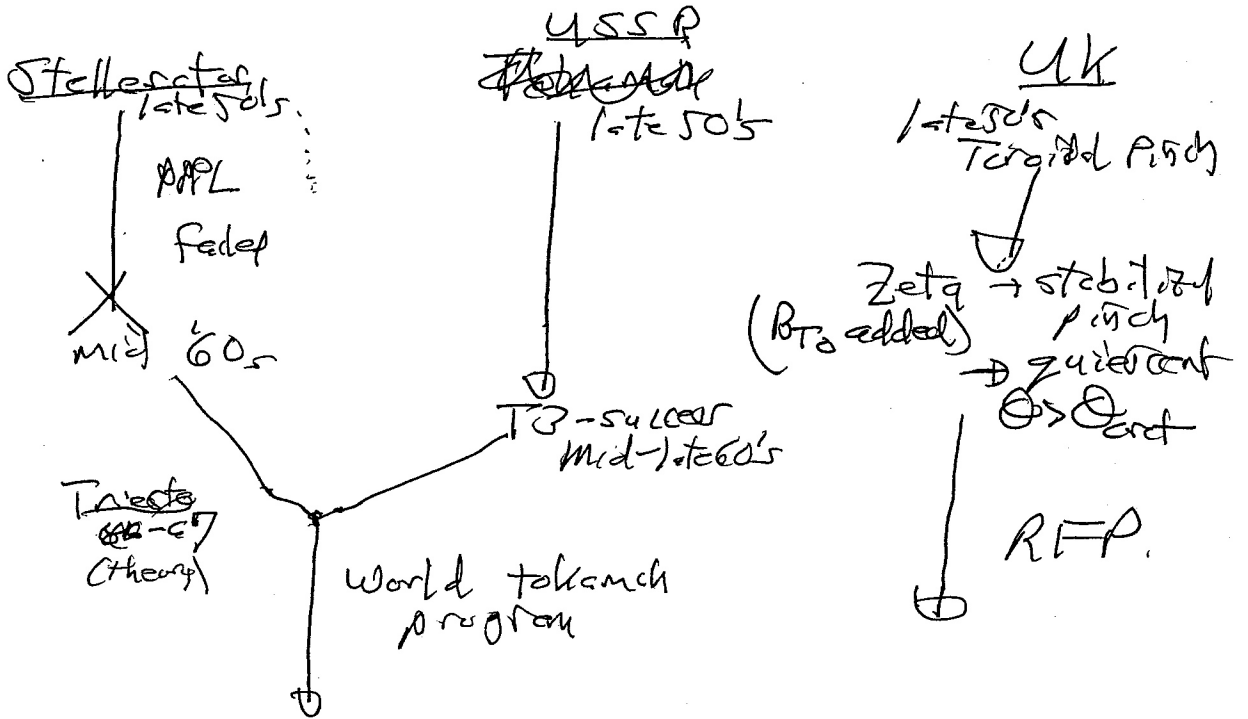 Stellerator
late 50's
PPPL
faded
mid '60s
USSR
late 50's
T3 - success
mid-late 60's
Trieste
-67
(theory)
World tokamak
program
UK
late 50's
Toroidal Pinch
Zeta → stabilized
pinch
(B_T0 added)
→ quiescent
Θ > Θ_crit
RFP.